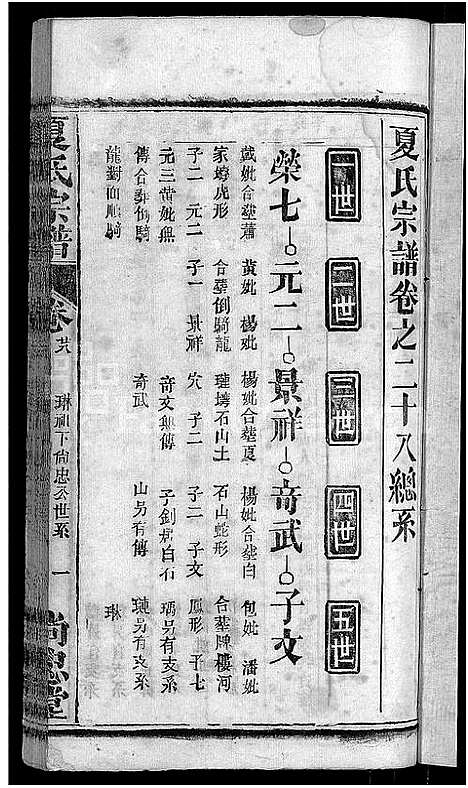 夏氏宗譜卷之二十八總系
一世 二世 三世 四世 五世
榮七 元二 景祥 奇武 子文
戴妣合塟蕭 黃妣 楊妣 楊妣合塟夏 楊妣合塟白 包妣 潘妣
家塝虎形 合塟倒騎龍 璉塝石山土 石山蛇形 合塟牌樓河
子二 元二 子一 景祥 穴 子二 子二 子文 鳳形 子七
元三黃妣無 奇文無傳 子釗居白石 瑀另有支系
傳合塟倒騎 奇武 山另有傳 璉另有支系
龍對面順騎 琳
夏氏宗譜 卷廿八 琳祖下尙忠公世系 一 尚忠堂